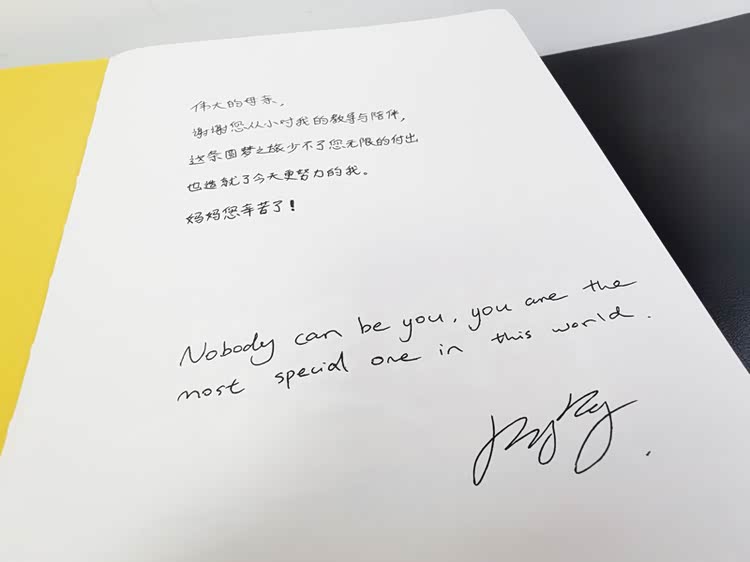 伟大的母亲，
谢谢您从小对我的教导与陪伴，
这条圆梦之旅少不了您无限的付出
也造就了今天更努力的我。
妈妈您辛苦了！
Nobody can be you, you are the
most special one in this world.